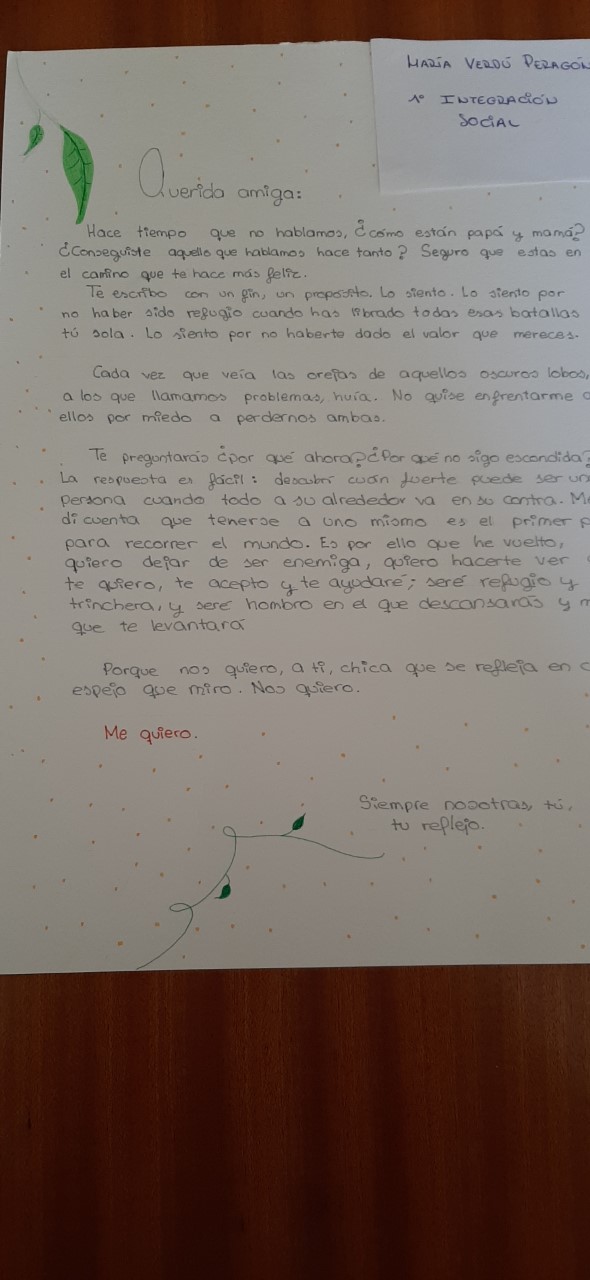 MARÍA VERDÚ PERAGÓN
1º INTEGRACIÓN
SOCIAL
Querida amiga:
Hace tiempo que no hablamos, ¿cómo están papá y mamá?
¿Conseguiste aquello que hablamos hace tanto? Seguro que estas en
el camino que te hace más feliz.
Te escribo con un fin, un proposito. Lo siento. Lo siento por
no haber sido refugio cuando has librado todas esas batallas
tú sola. Lo siento por no haberte dado el valor que mereces.
Cada vez que veía las orejas de aquellos oscuros lobos,
a los que llamamos problemas, huía. No quise enfrentarme
ellos por miedo a perdernos ambas.
Te preguntarás ¿por qué ahora? ¿Por qué no sigo escondida?
La respuesta es fácil: descubrí cuán fuerte puede ser
persona cuando todo a su alrededor va en su contra.
di cuenta que tenerse a uno mismo es el primer
para recorrer el mundo. Es por ello que he vuelto,
quiero dejar de ser enemiga, quiero hacerte ver
te quiero, te acepto y te ayudaré; seré refugio y
trinchera, y seré hombro en el que descansarás y
que te levantará
Porque nos quiero, a ti, chica que se refleja en
espejo que miro. Nos quiero.
Me quiero.
Siempre nosotras, tú,
tu reflejo.